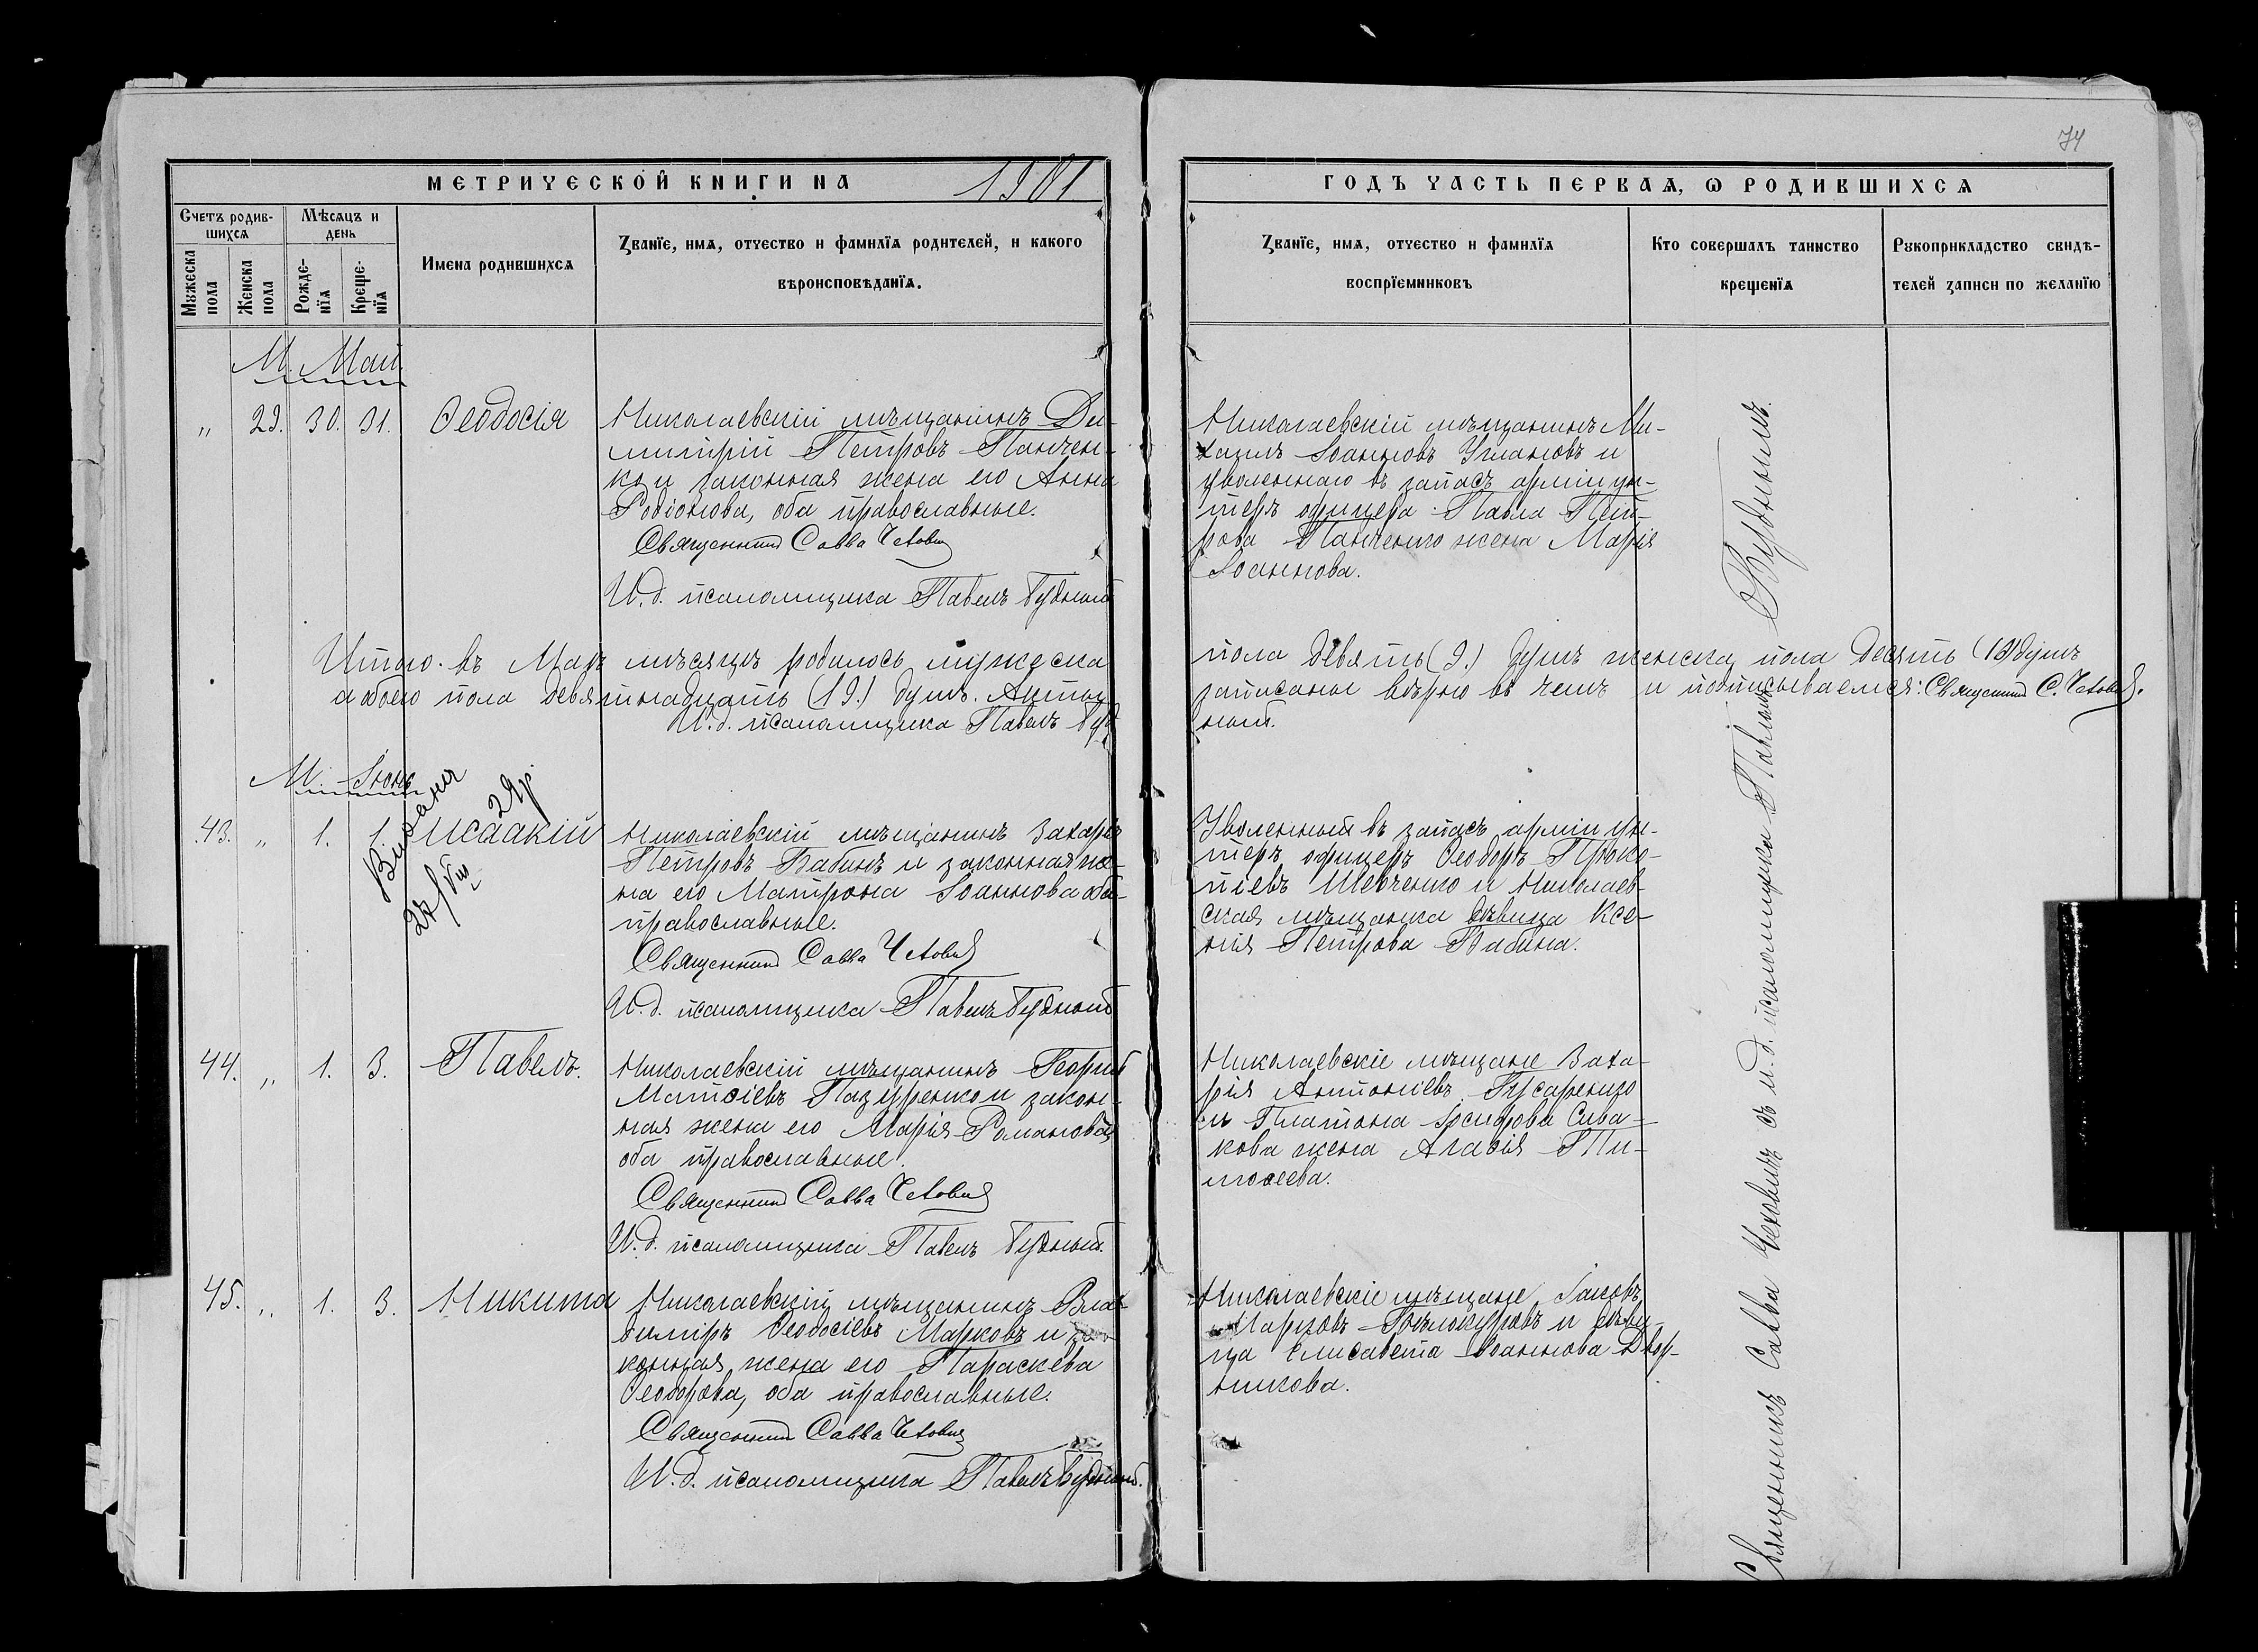 74
МЕТРИЧЕСКОЙ КНИГИ НА 1901
ГОДЪ ЧАСТЬ ПЕРВАЯ, Ѡ РОДИВШИХСЯ
Счетъ родив-
шихся
Мѣсяцъ и
день
Мужеска
пола
Женска
пола
Рожде-
нїя
Креще-
нїя
Имена родившихся
Званїе, имя, отчество и фамилїя родителей, и какого
вѣроисповѣданїя.
Званїе, имя, отчество и фамилїя
воспрїемниковъ
Кто совершалъ таинство
крещенїя
Рукоприкладство свидѣ-
телей записи по желанїю
М. Май.
" 29. 30. 31. Ѳеодосія
Николаевскій мѣщанинъ Ди-
митрій Петровъ Панчен-
ко и законная жена его Анна
Родіонова, оба православные.
Священникъ Савва Чехович
И. д. псаломщика Павелъ Будный
Николаевскій мѣщанинъ Ми-
хаилъ Іоанновъ Углановъ и
уволеннаго въ запасъ арміи ун-
теръ офицера Павла Пет-
рова Панченко жена Марія
Іоаннова.
Итого въ Маѣ мѣсяцѣ родилось мужеска
пола девять (9.) душъ женска пола десять (10) душъ
а обоего пола девятнадцать (19.) душъ. Акты
записаны вѣрно въ чемъ и подписываемся: Священникъ С. Чехович.
И. д. псаломщика Павелъ Буд
ный.
М. Іюнь
43. " 1. 1. Исаакій
Выдана
29р
27/VIII
Николаевскій мѣщанинъ Захарія
Петровъ Бабинъ и законная же-
на его Матрона Іоаннова оба
православные.
Священникъ Савва Чехович
И. д. псаломщика Павелъ Будный
Уволенный въ запасъ арміи ун-
теръ офицеръ Ѳеодоръ Проко-
піевъ Шевченко и Николаев-
ская мѣщанка дѣвица Ксе-
нія Петрова Бабина.
44. " 1. 3. Павелъ.
Николаевскій мѣщанинъ Георгій
Матѳіевъ Пазуренко и закон-
ная жена его Марія Романова
оба православные.
Священникъ Савва Чехович
И. д. псаломщика Павелъ Будный.
Николаевскіе мѣщане Заха-
рія Антоніевъ Гусаренко
и Платона Іосифова Сива-
кова жена Агаѳія Ти-
моѳеева.
45. " 1. 3. Никита
Николаевскій мѣщанинъ Вла-
диміръ Ѳеодосіевъ Марковъ и за-
конная жена его Параскева
Ѳеодорова, оба православные.
Священникъ Савва Чехович
И. д. псаломщика Павелъ Будный.
Николаевскіе мѣщане Іаковъ
Марковъ Бѣлокуровъ и дѣви-
ца Елисавета Іоаннова Двор-
никова.
Священникъ Савва Чеховичъ съ и. д. псаломщика Павломъ
Буднымъ.